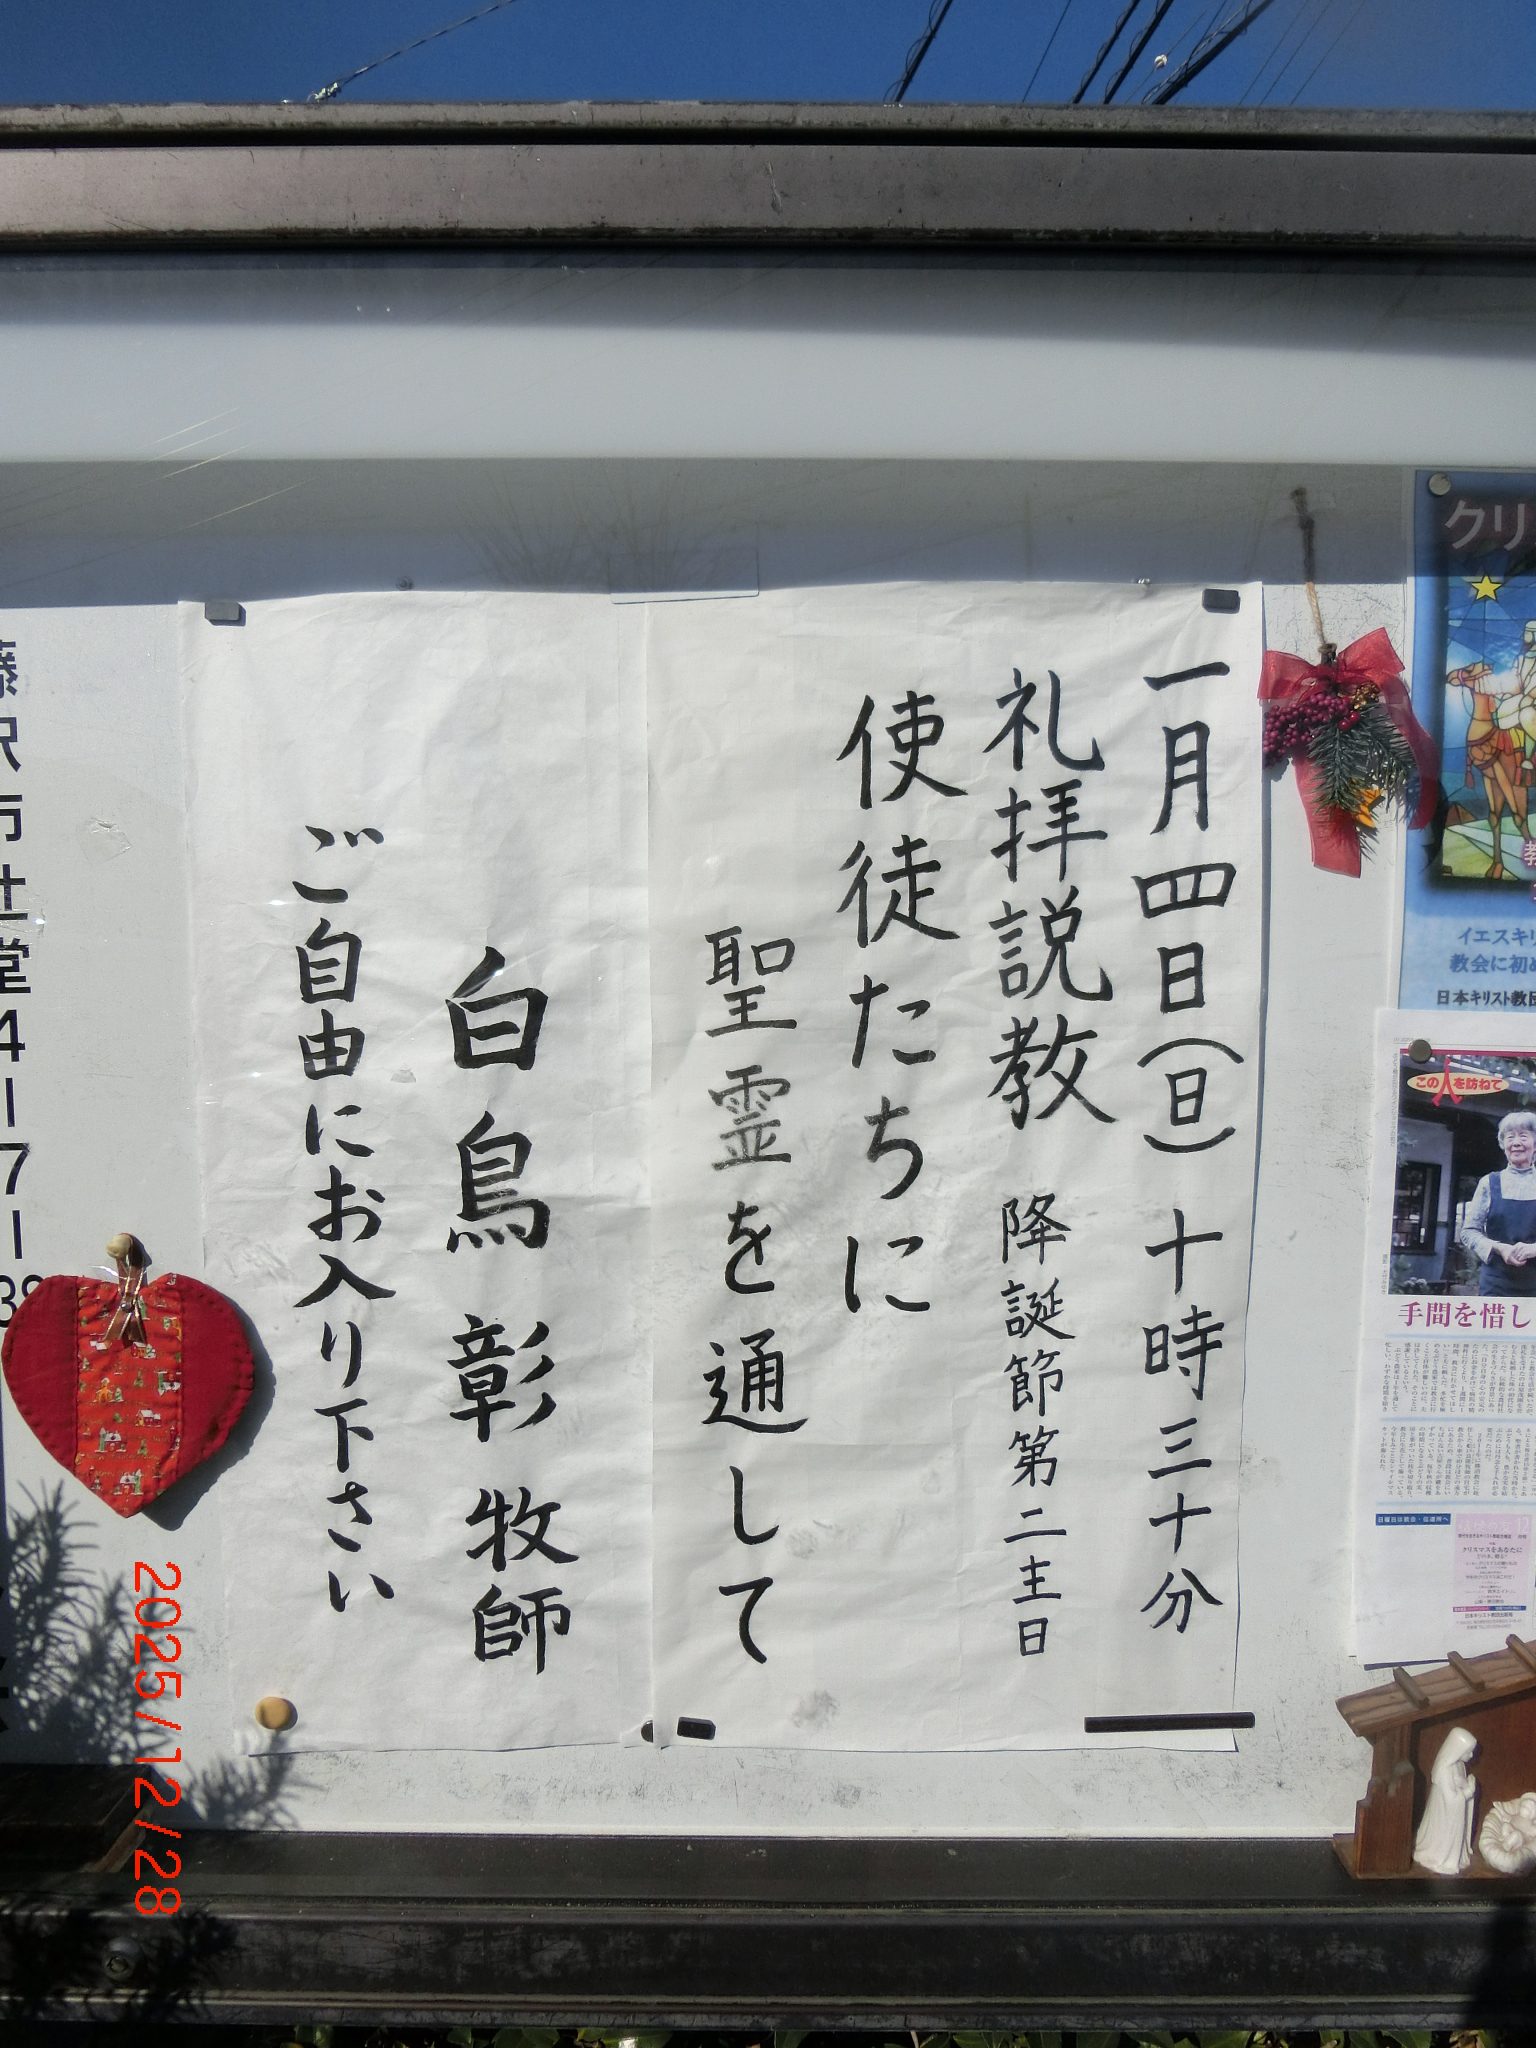 一月四日(日) 十時三十分
礼拝説教 降誕節第二主日
使徒たちに
聖霊を通して
白鳥 彰 牧師
ご自由にお入り下さい
堂4-7-
クリ
イエスキリ
教会に初め
日本キリスト教団
この人を訪ねて
手間を惜し
クリスマスをあなたに
2025/12/28